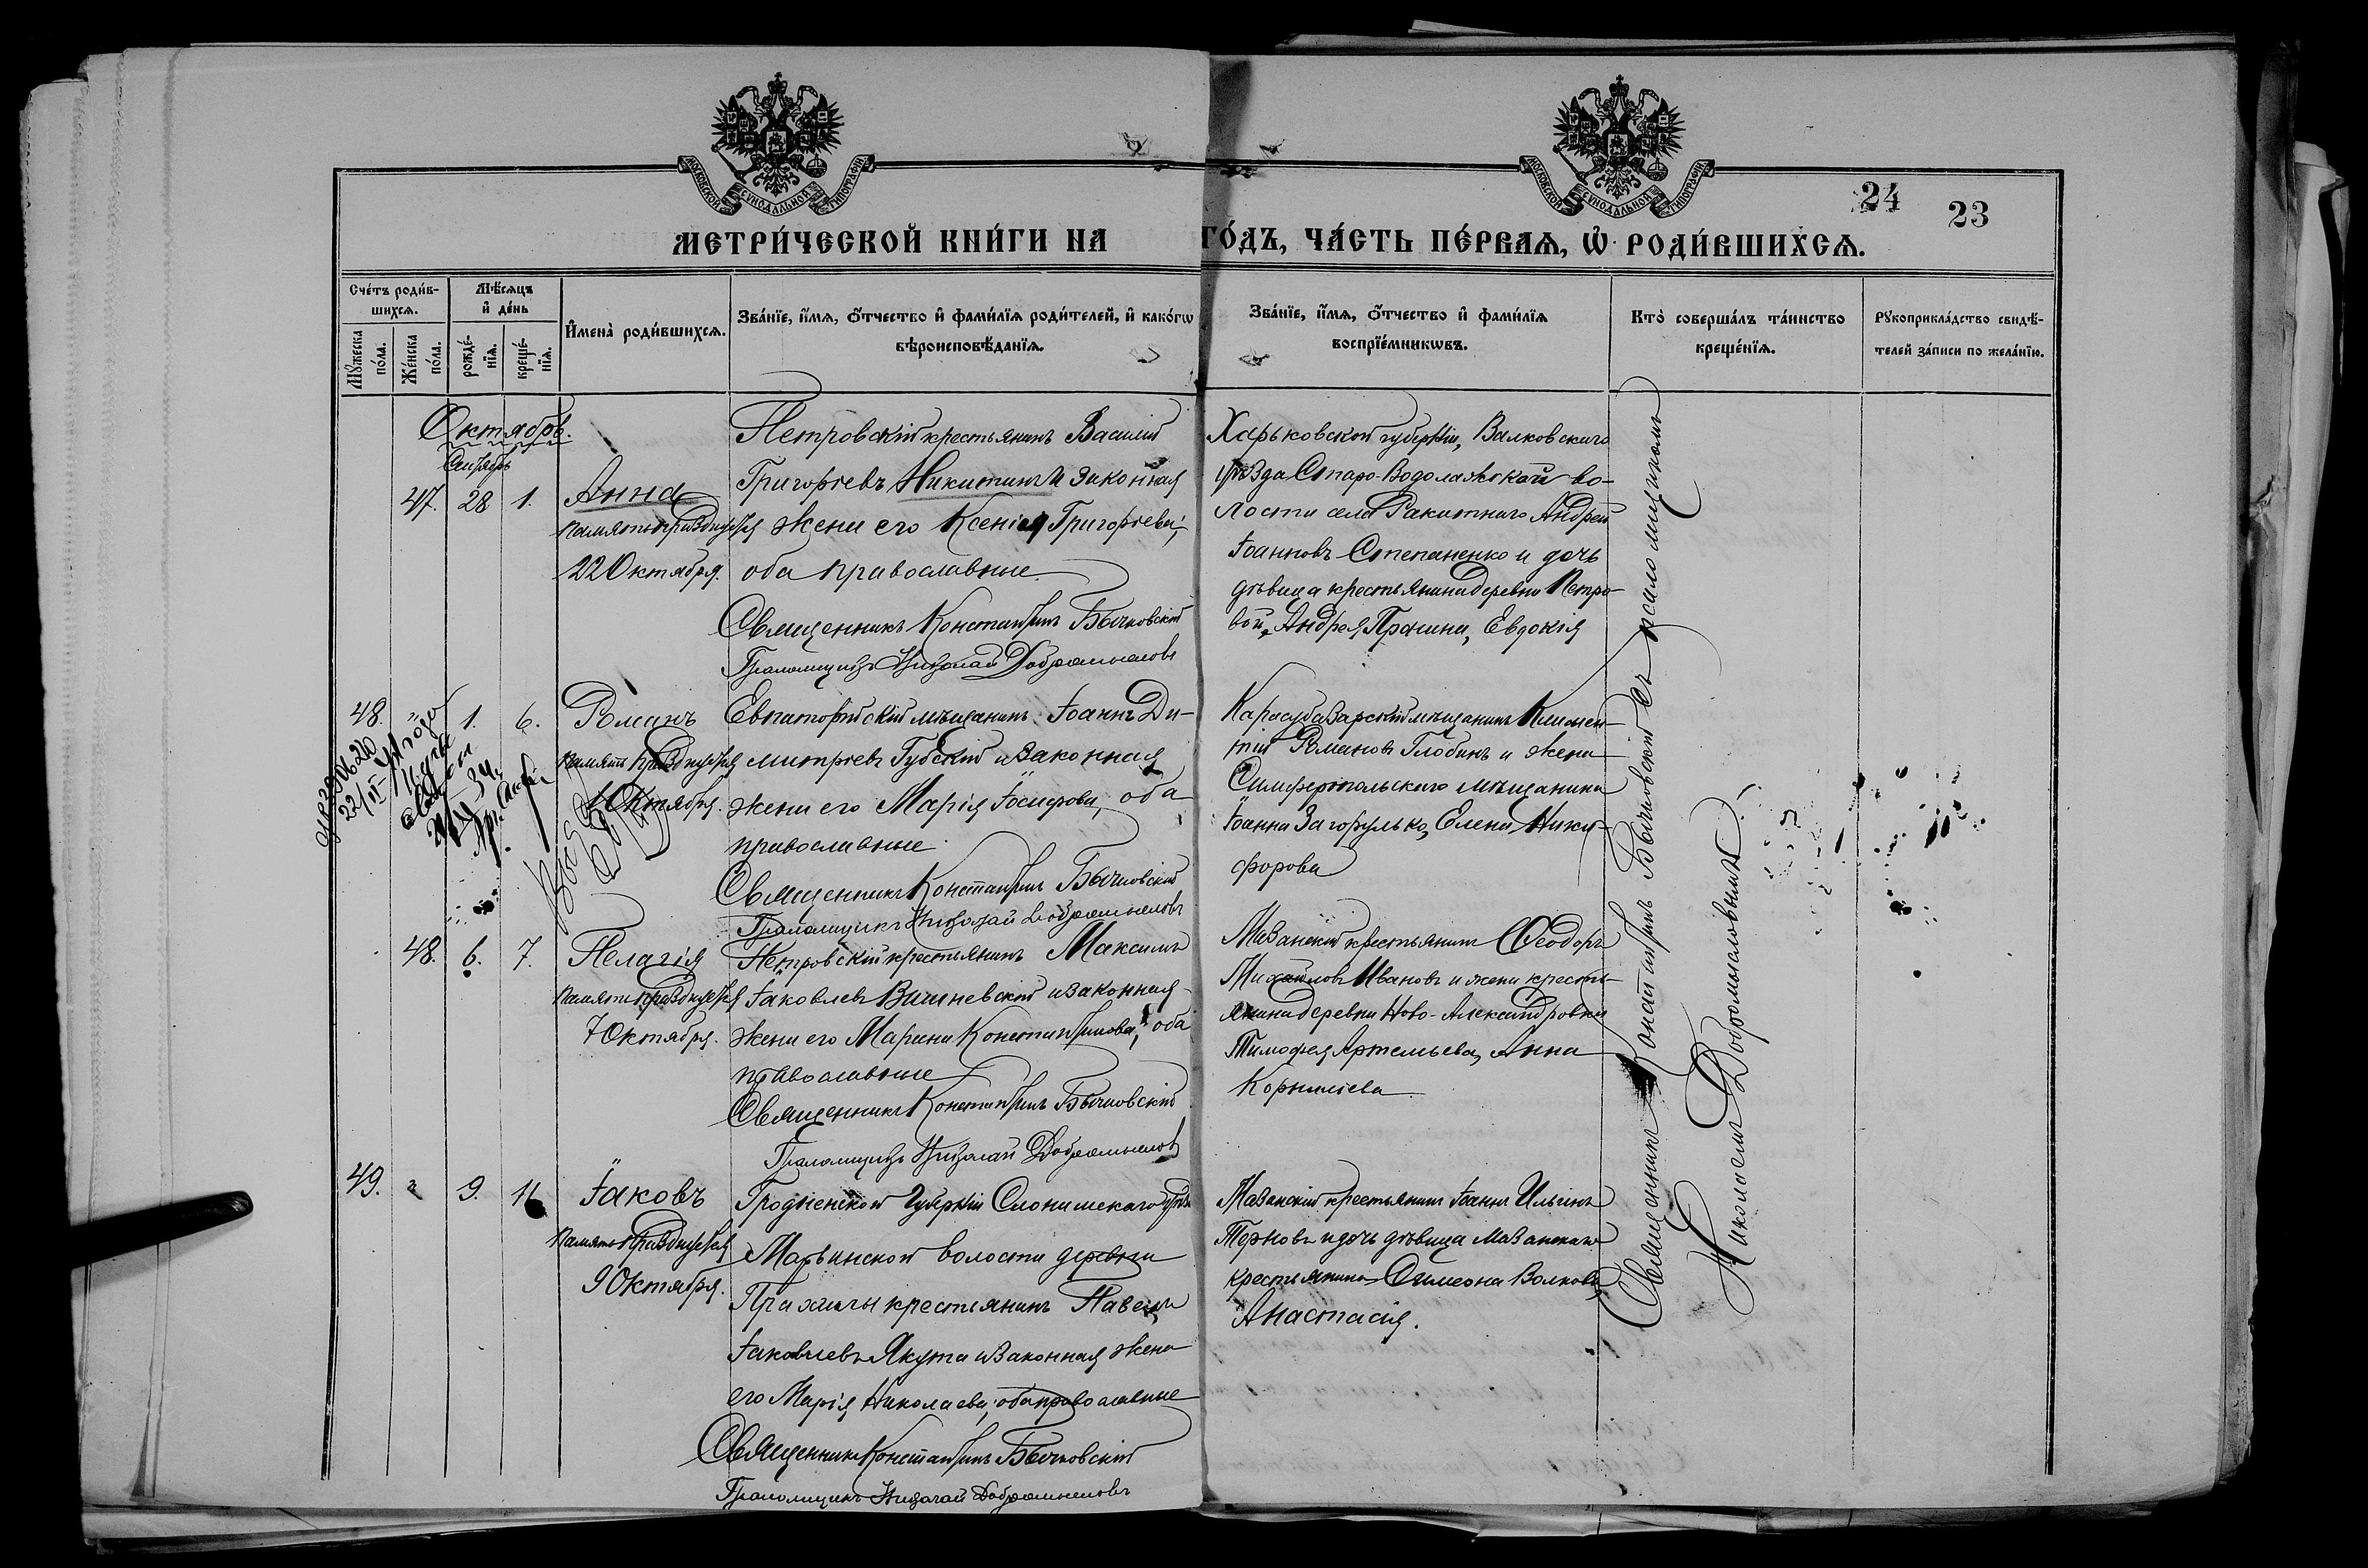 МОСКОВСКОЙ СѴНОДАЛЬНОЙ ТИПОГРАФІИ
МОСКОВСКОЙ СѴНОДАЛЬНОЙ ТИПОГРАФІИ
24
23
МЕТРИ́ЧЕСКОЙ КНИ́ГИ НА ГО́ДЪ, ЧА́СТЬ ПЕ́РВАѦ, Ѿ РОДИ́ВШИХСѦ.
Сче́тъ роди́в-
шихсѧ.
Мѣ́сѧцъ
и҆ де́нь
Мꙋ́жеска по́ла.
Же́нска по́ла.
рожде́-
нїѧ.
креще́-
нїѧ.
И҆мена̀ роди́вшихсѧ.
Зва́нїе, и҆́мѧ, ѻ҆́тчество и҆ фами́лїѧ роди́телей, и҆ како́гѡ
вѣроисповѣ́данїѧ.
Зва́нїе, и҆́мѧ, ѻ҆́тчество и҆ фами́лїѧ
воспрїе́мникѡвъ.
Кто̀ соверша́лъ та́инство
креще́нїѧ.
Рꙋкоприкла́дство свидѣ́-
телей за́писи по жела́нїю.
Октябрь.
Сентябрь
47. 28 1.
Анна
память празднуется
22 Октября.
Петровскій крестьянинъ Василій
Григорьевъ Никитинъ и законная
жена его Ксенія Григорьева;
оба православные.
Священникъ Константинъ Бычковскій
Псаломщикъ Николай Добромысловъ
Харьковской губерніи, Валковскаго
уѣзда Старо-Водолажской во-
лости села Ракитнаго Андрей
Іоанновъ Степаненко и дочь
дѣвица крестьянина деревни Петро-
вой, Андрея Евдокія
48. " 1. 6.
Романъ
память празднуется
1 Октября.
Евпаторійскій мѣщанинъ Іоаннъ Ди-
митріевъ Губскій и законная
жена его Марія Іосифова, оба
православные
Священникъ Константинъ Бычковскій
Псаломщикъ Николай Добромысловъ
Карасубазарскій мѣщанинъ Климен-
тій Романовъ Глобинъ и жена
Симферопольскаго мѣщанина
Іоанна Загорулько, Елена Ники-
форова
48. 6. 7.
Пелагія
память празднуется
7 Октября.
Петровскій крестьянинъ Максимъ
Іаковлевъ Вишневскій и законная
жена его Марина Константинова, оба
православные
Священникъ Константинъ Бычковскій
Псаломщикъ Николай Добромысловъ
Мазанскій крестьянинъ Ѳеодоръ
Михайловъ Ивановъ и жена кресть-
янина деревни Ново-Александровки
Тимофея Артемьева, Анна
Корниліева
49. " 9. 16
Іаковъ
память празднуется
9 Октября.
Гродненской губерніи Слонимскаго уѣзда
Марьинской волости деревни
крестьянинъ Павелъ
Іаковлевъ Якута и законная жена
его Марія Николаева; оба православные
Священникъ Константинъ Бычковскій
Псаломщикъ Николай Добромысловъ
Мазанскій крестьянинъ Іоаннъ Ильинъ
Терновъ и дочь дѣвица Мазанскаго
крестьянина Симеона Волкова
Анастасія.
Священникъ Константинъ Бычковскій съ псаломщикомъ
Николаемъ Добромысловымъ.